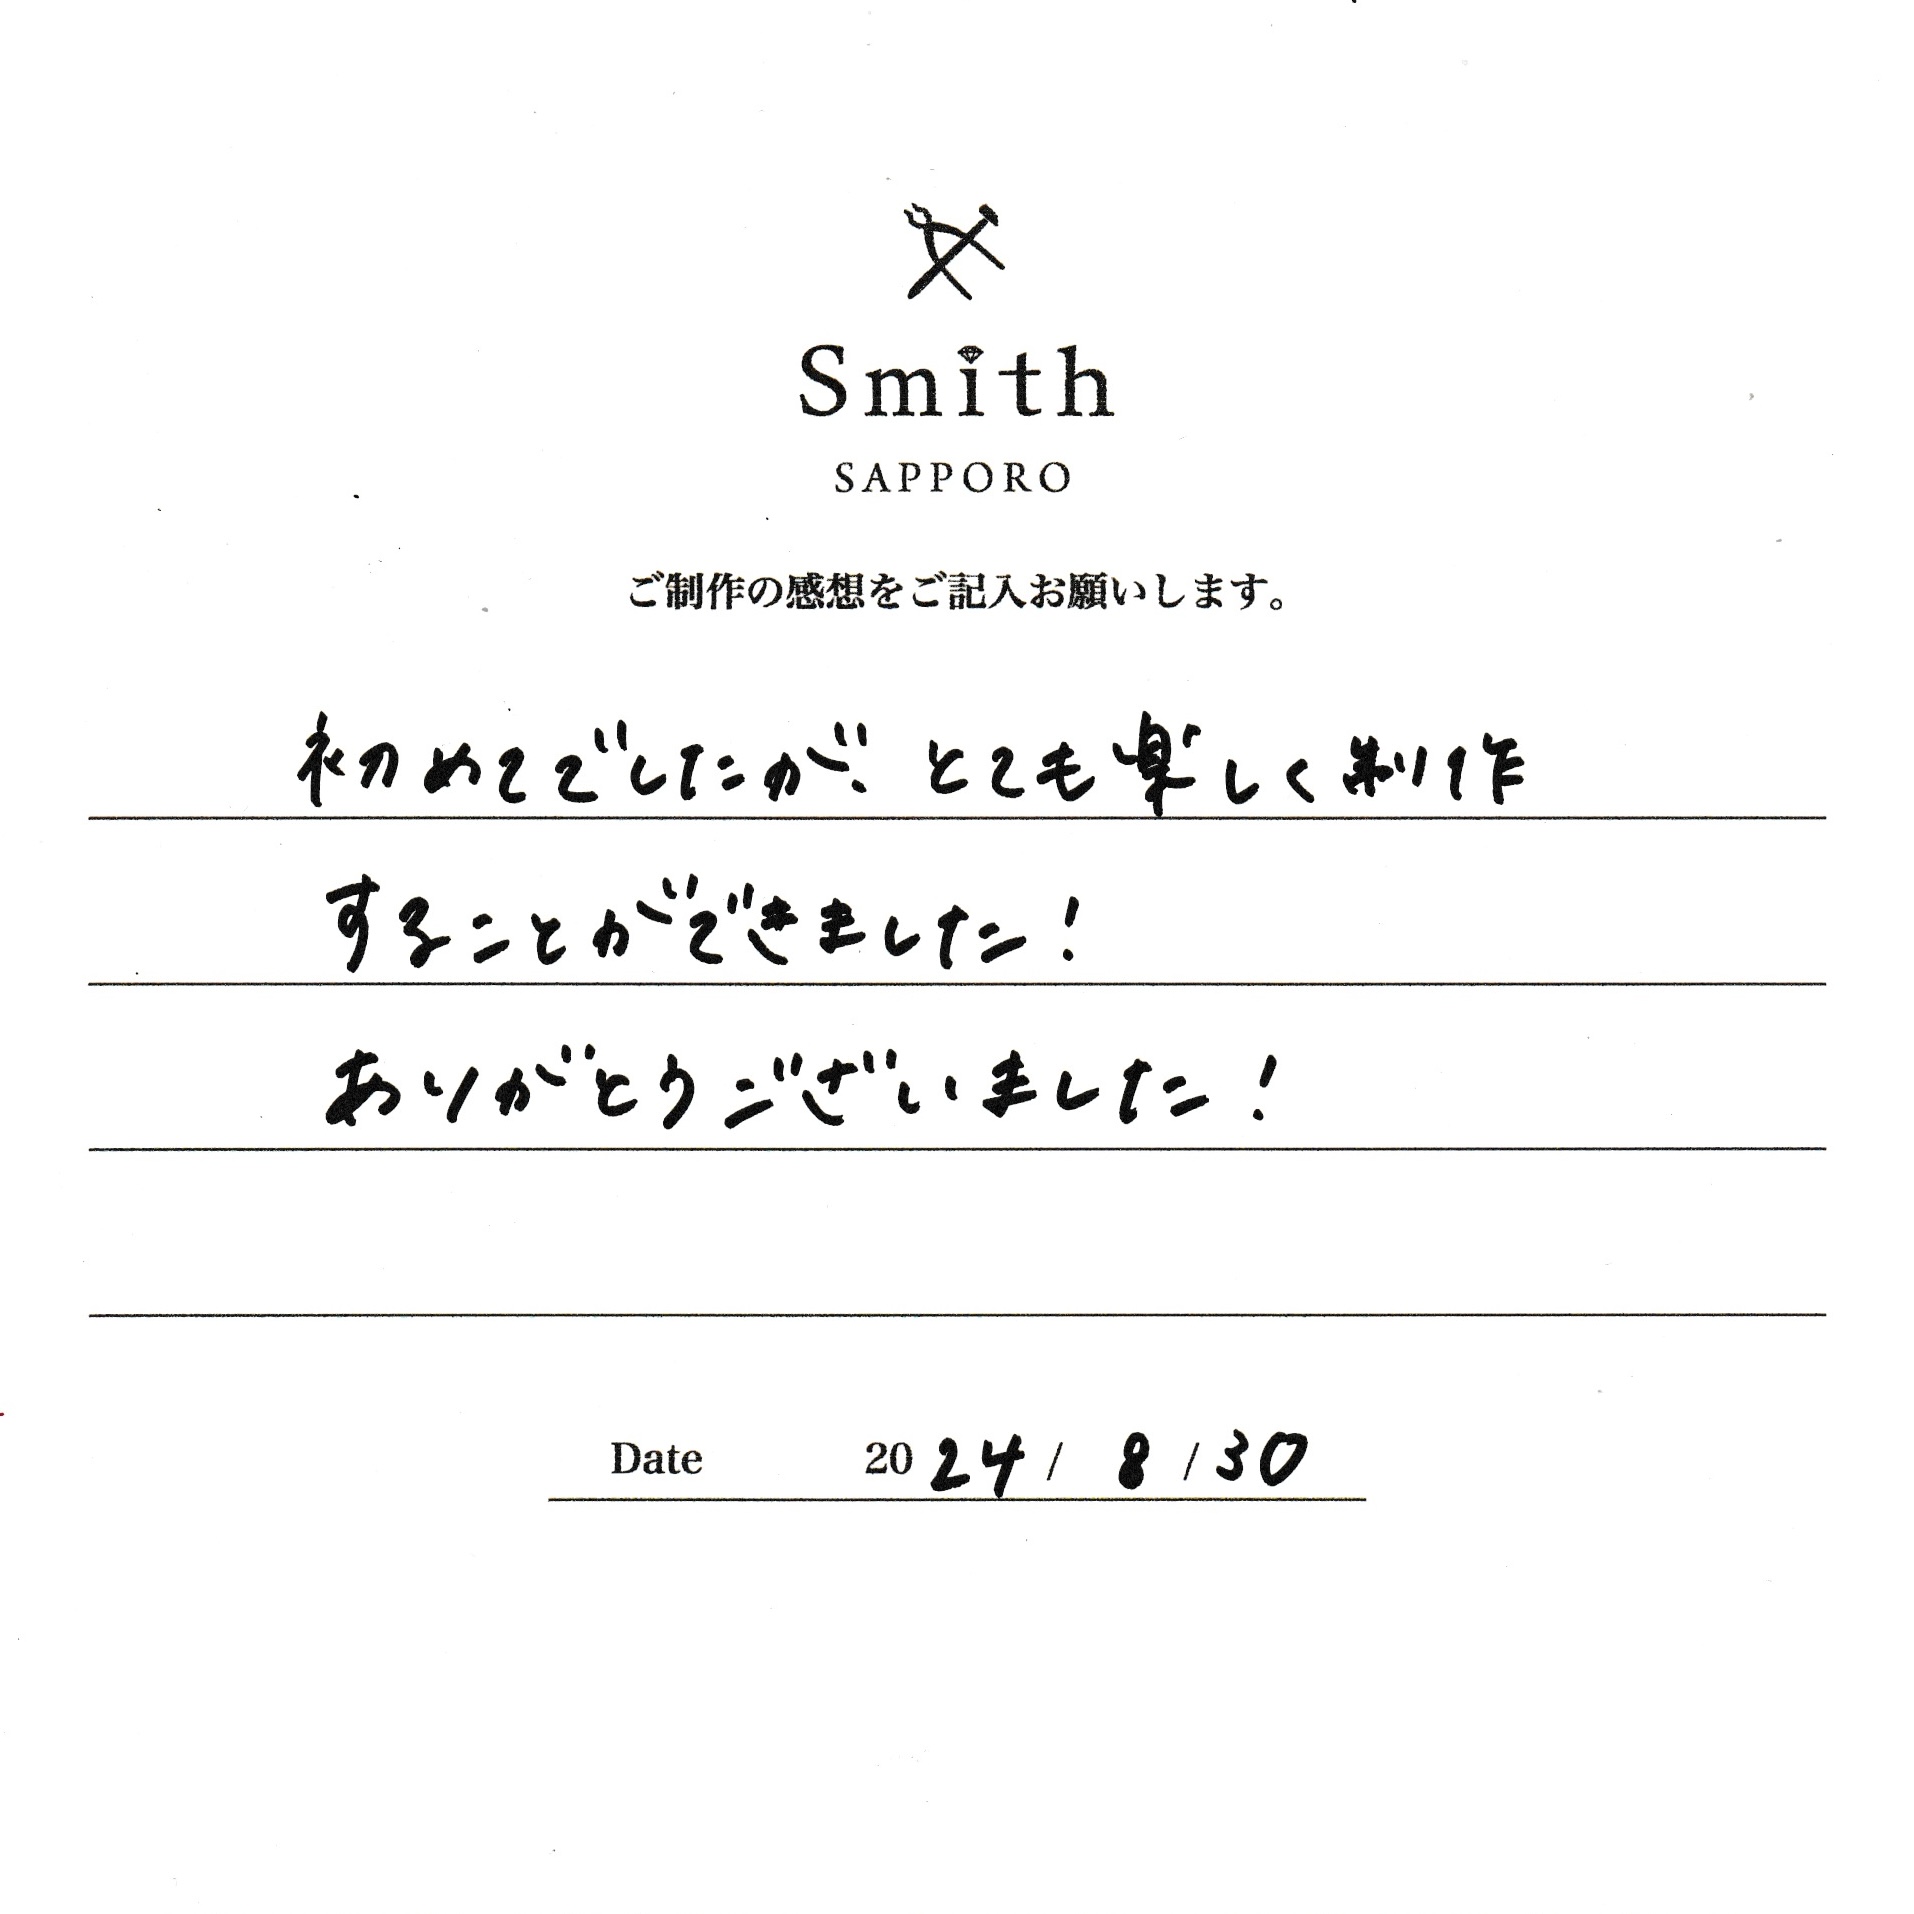 Smith
SAPPORO
ご制作の感想をご記入お願いします。
初めてでしたが、とても楽しく制作
することができました!
ありがとうございました!
Date 2024 / 8 / 30